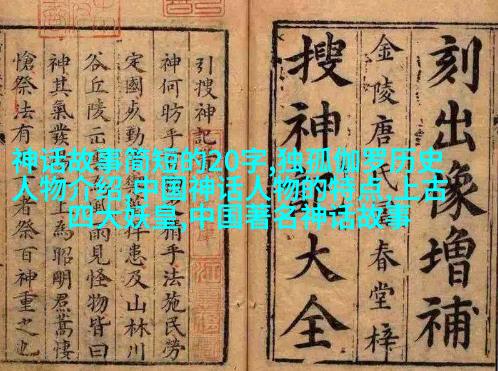 神话故事简短的120字,独孤伽罗历史
人物介绍,中国神话人物的特点,上古
四大妖皇,中国著名神话故事
刻出像增補
金陵唐氏春堂梓
搜神大全
引搜神記
神何昉手法施民勞
定國患及山林川
谷丘陵見怪物皆曰
神其氣發昭明焄蒿悽
愴祭法有者祭百神重之也